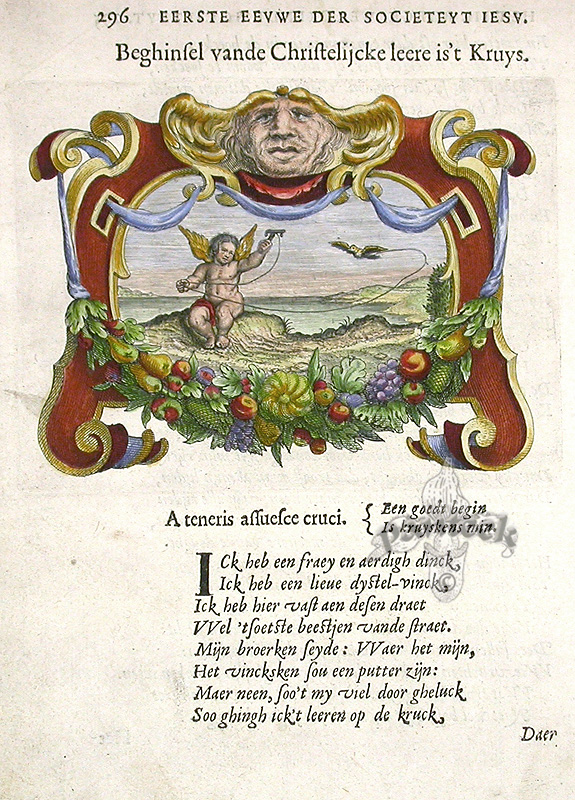 296 EERSTE EEVWE DER SOCIETEYT IESV.
Beghinſel vande Chriſtelijcke leere is't Kruys.
A teneris aſſueſce cruci. { Een goedt begin
Is kruyskens min.
ICk heb een fraey en aerdigh dinck,
Ick heb een lieue dyſtel-vinck,
Ick heb hier vaſt aen deſen draet
VVel 'tſoetſte beeſtjen vande ſtraet.
Mijn broerken ſeyde: VVaer het mijn,
Het vincksken ſou een putter zijn:
Maer neen, ſoo't my viel door gheluck
Soo ghingh ick't leeren op de kruck,
Daer